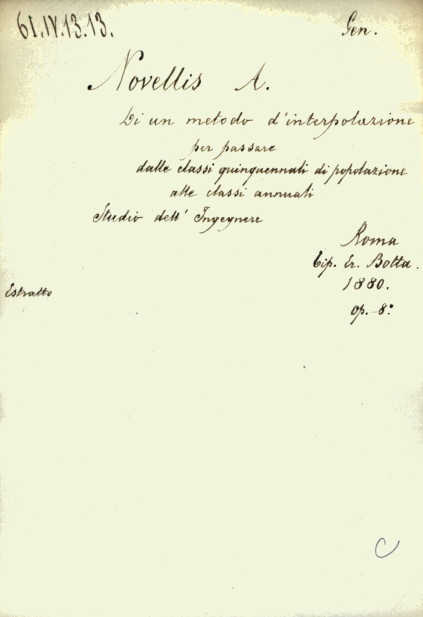 61.IV.13.13.
Gen.
Novellis A.
Di un metodo d'interpolazione
per passare
dalle classi quinquennali di popolazione
alle classi annuali
Studio dell' Ingegnere
Roma
Tip. Er. Botta.
1880.
op. 8°
Estratto
C